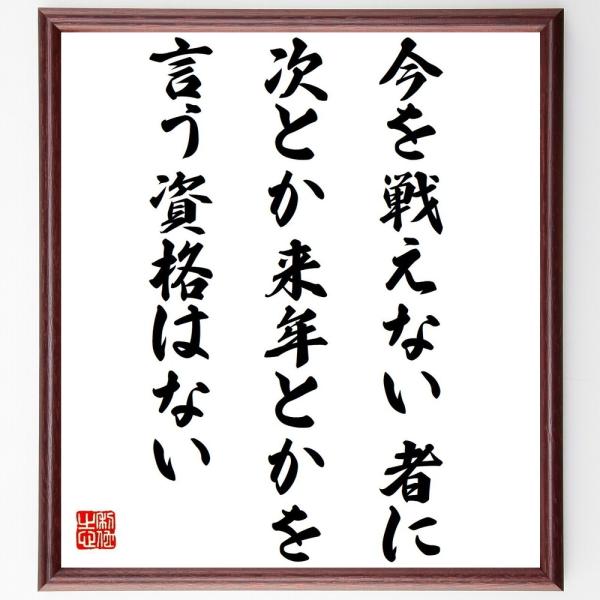 今を戦えない 者に
次とか来年とかを
言う資格はない